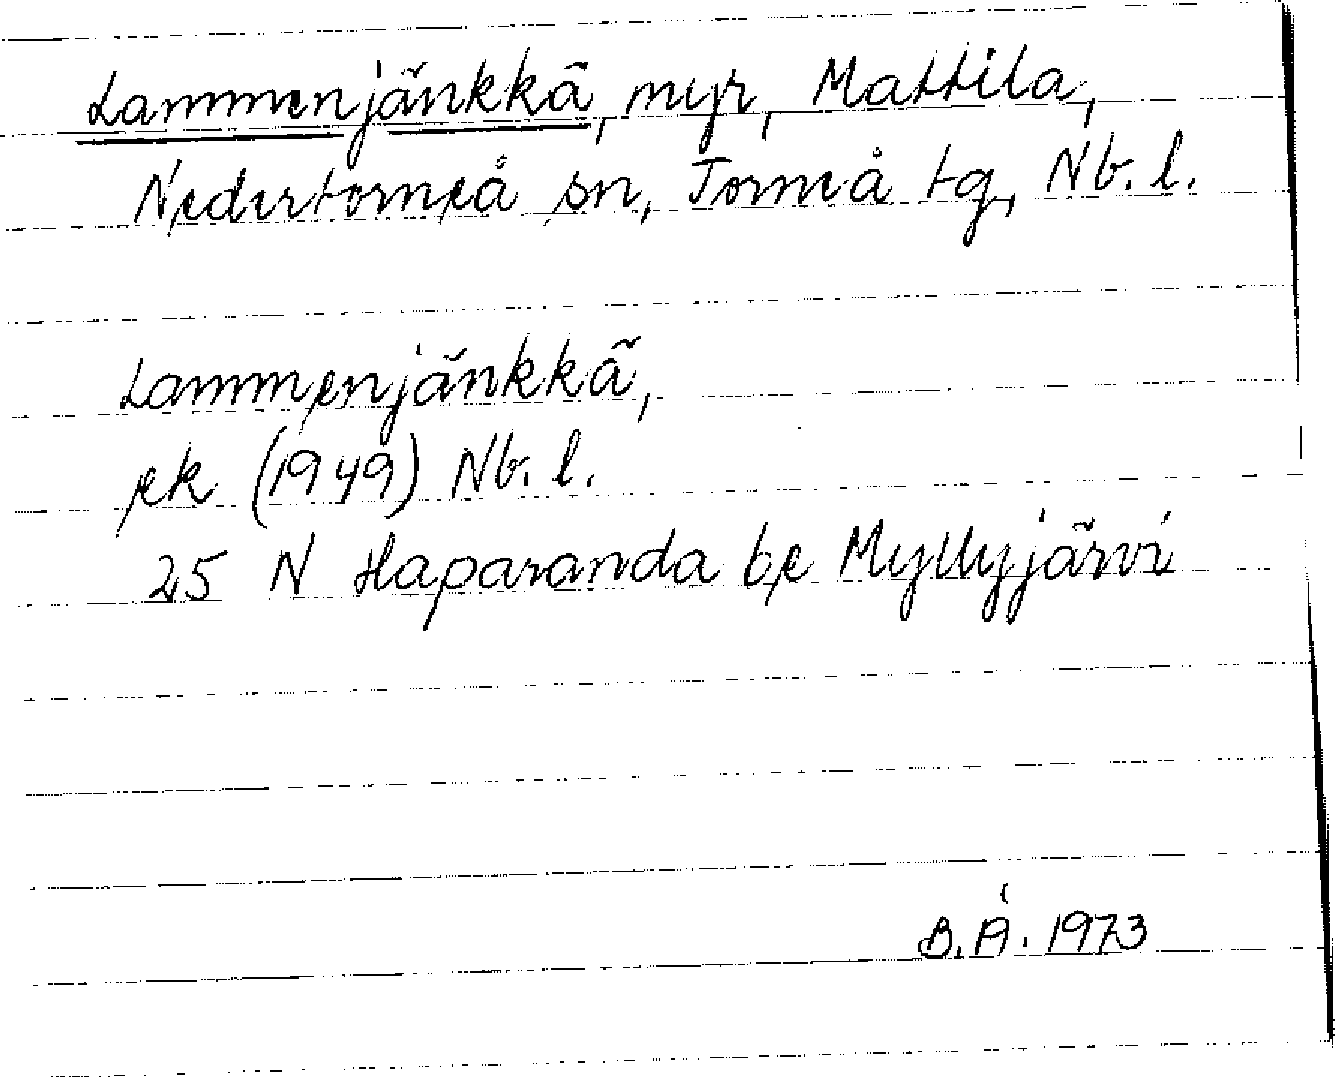 Lammenjänkkä, myr, Mattila,
Nedertorneå sn, Torneå tg, Nb. l.
Lammenjänkkä,
ek (1949) Nb. l.
25 N Haparanda be Myllyjärvi
B. Å. 1973